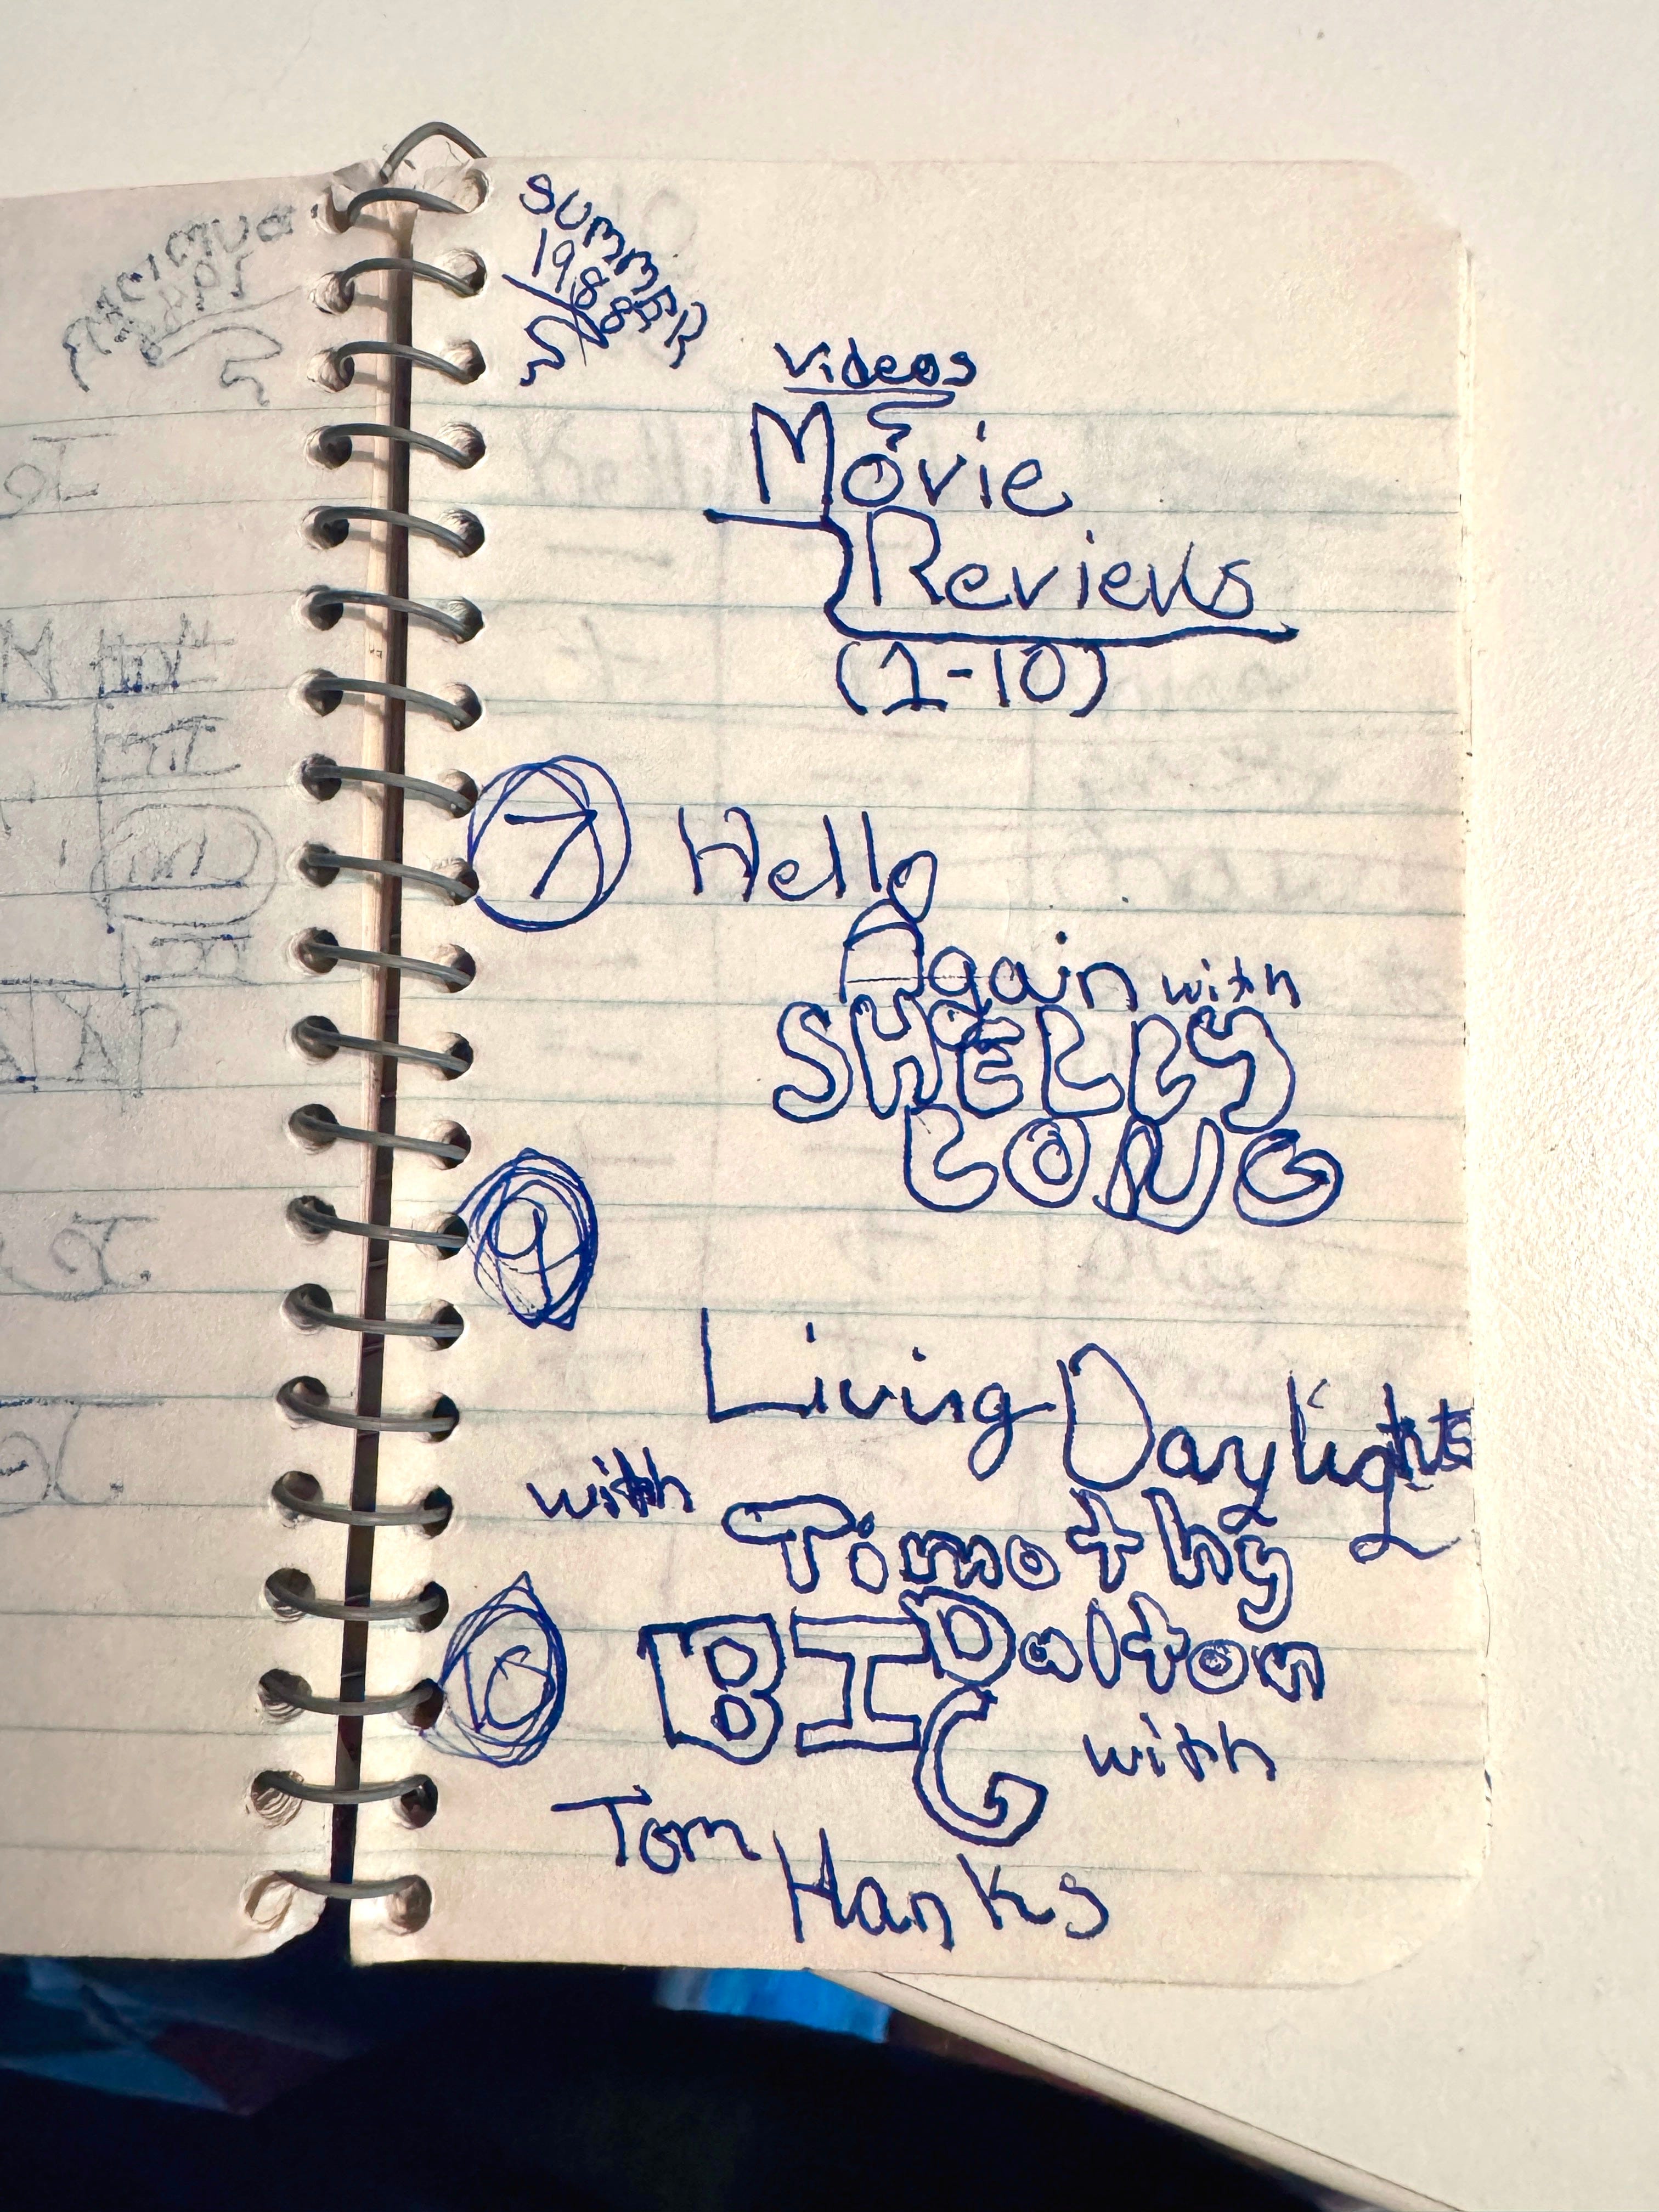 SUMMER
1988
Videos
Movie
Reviews
(1-10)
7 Hello
Again with
SHELLY
LONG
9
Living Daylights
with Timothy
Dalton
10 BIG with
Tom Hanks